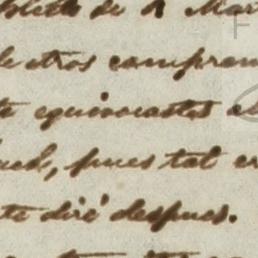 de R Mar
otros compren
te equivocastes
ued, pues tal er
te diré despues.